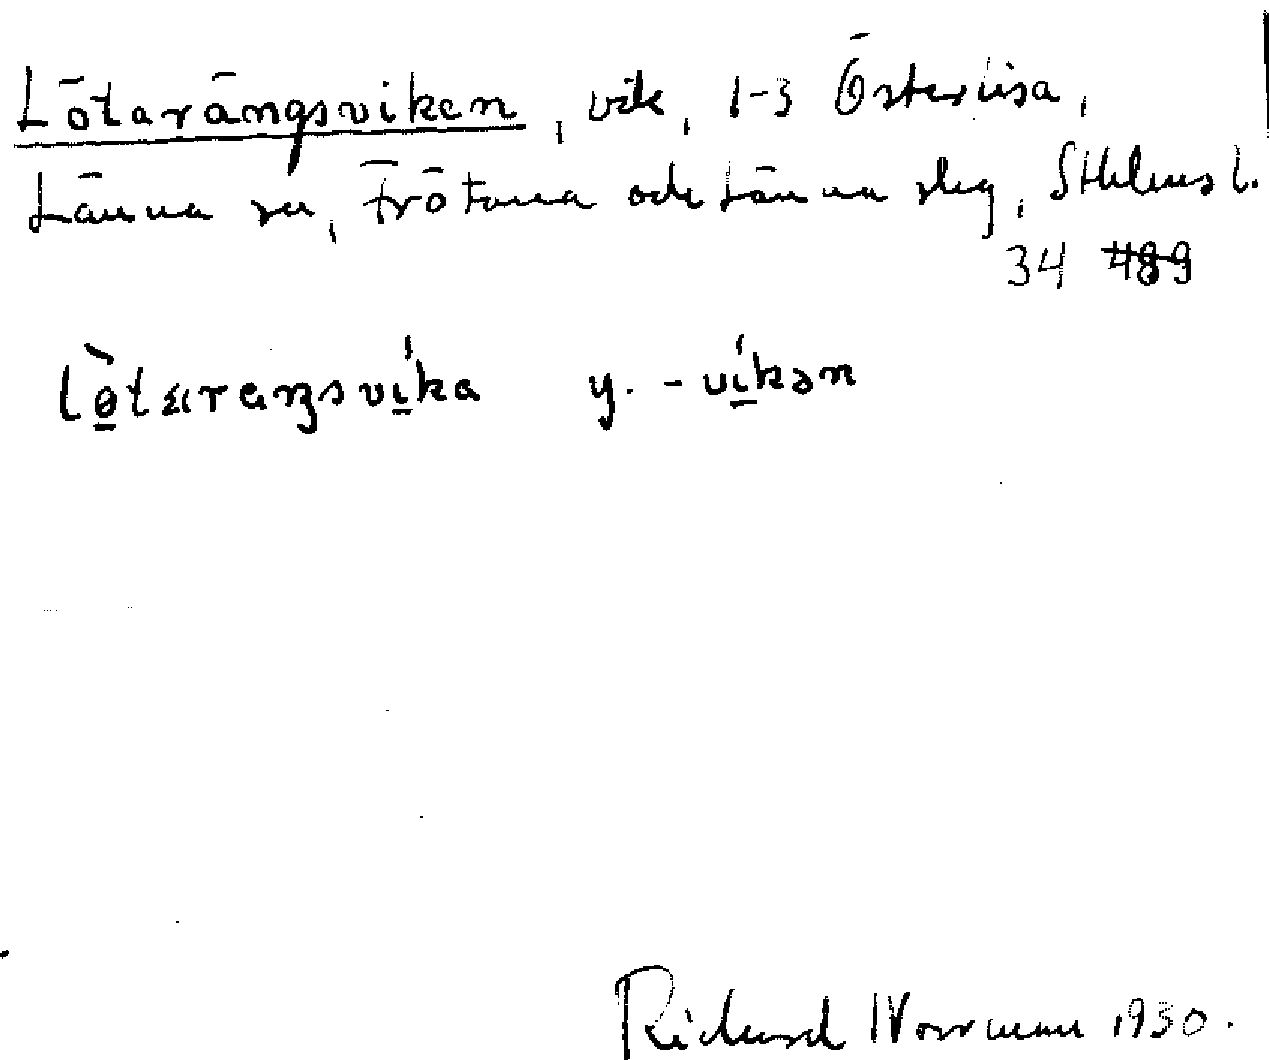 Lötarängsviken, vik, 1-3 Österlisa,
Länna sn, Frötuna och Länna slg, Sthlms l.
34 489
lø̀tararaŋsvíka y. -víkən
Richard Norrman 1930.